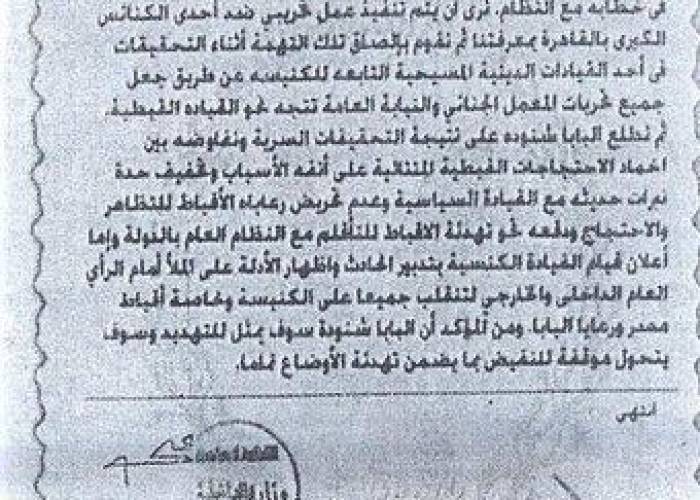 فى خطابه مع النظام. نرى أن يتم تنفيذ عمل تخريبي ضد أحدى الكنائس
الكبرى بالقاهرة بمعرفتنا ثم نقوم بإلصاق تلك التهمة أثناء التحقيقات
فى أحد القيادات الدينية المسيحية التابعه للكنيسه عن طريق جعل
جميع تحريات المعمل الجنائي والنيابة العامة تتجه نحو القياده القبطية.
ثم نطلع البابا شنوده على نتيجة التحقيقات السرية ونفاوضه بين
اخماد الاحتجاجات القبطية المتتالية على أتفه الأسباب وتخفيف حدة
نبرات حديثه مع القيادة السياسية وعدم تحريض رعاياه الأقباط للتظاهر
والاحتجاج ودفعه نحو تهدئة الاقباط للتأقلم مع النظام العام بالدولة وإما
أعلان قيام القيادة الكنسية بتدبير الحادث واظهار الأدلة على الملأ أمام الرأي
العام الداخلى والخارجي لتنقلب جميعا على الكنيسة وخاصة أقباط
مصر ورعايا البابا. ومن المؤكد أن البابا شنودة سوف يمثل للتهديد وسوف
يتحول موقفة للنقيض بما يضمن تهدئة الأوضاع تماما.
انتهي
وزارة الداخلية